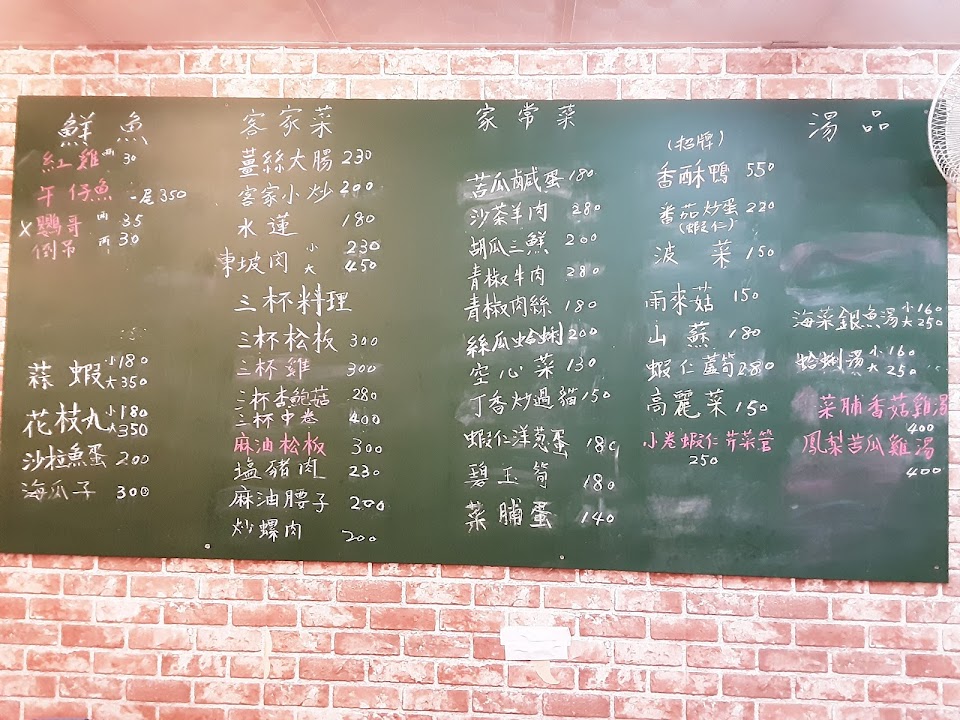 鮮魚
紅雞 兩30
午仔魚 一尾350
x鸚哥 兩35
倒吊 兩30
蒜蝦 小180
大350
花枝丸 小180
大350
沙拉魚蛋 200
海瓜子 300
客家菜
薑絲大腸 230
客家小炒 200
水蓮 180
東坡肉 小 230
大 450
三杯料理
三杯松板 300
三杯雞 300
三杯杏鮑菇 280
三杯中卷 400
麻油松板 300
塩豬肉 230
麻油腰子 200
炒螺肉 200
家常菜
苦瓜鹹蛋 180
沙茶羊肉 280
胡瓜三鮮 200
青椒牛肉 280
青椒肉絲 180
絲瓜蛤蜊 200
空心菜 130
丁香炒過貓 150
蝦仁洋蔥蛋 180
碧玉筍 180
菜脯蛋 140
(招牌)
香酥鴨 550
番茄炒蛋 220
(蝦仁)
波菜 150
雨來菇 150
山蘇 180
蝦仁蘆筍 280
高麗菜 150
小卷蝦仁芹菜管
250
湯品
海菜銀魚湯 小160
大250
蛤蜊湯 小160
大250
菜脯香菇雞湯
400
鳳梨苦瓜雞湯
400